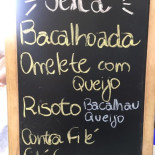 Bacalhoada
Omelete com
Queijo
Risoto Bacalhau
Queijo
Contra Filé